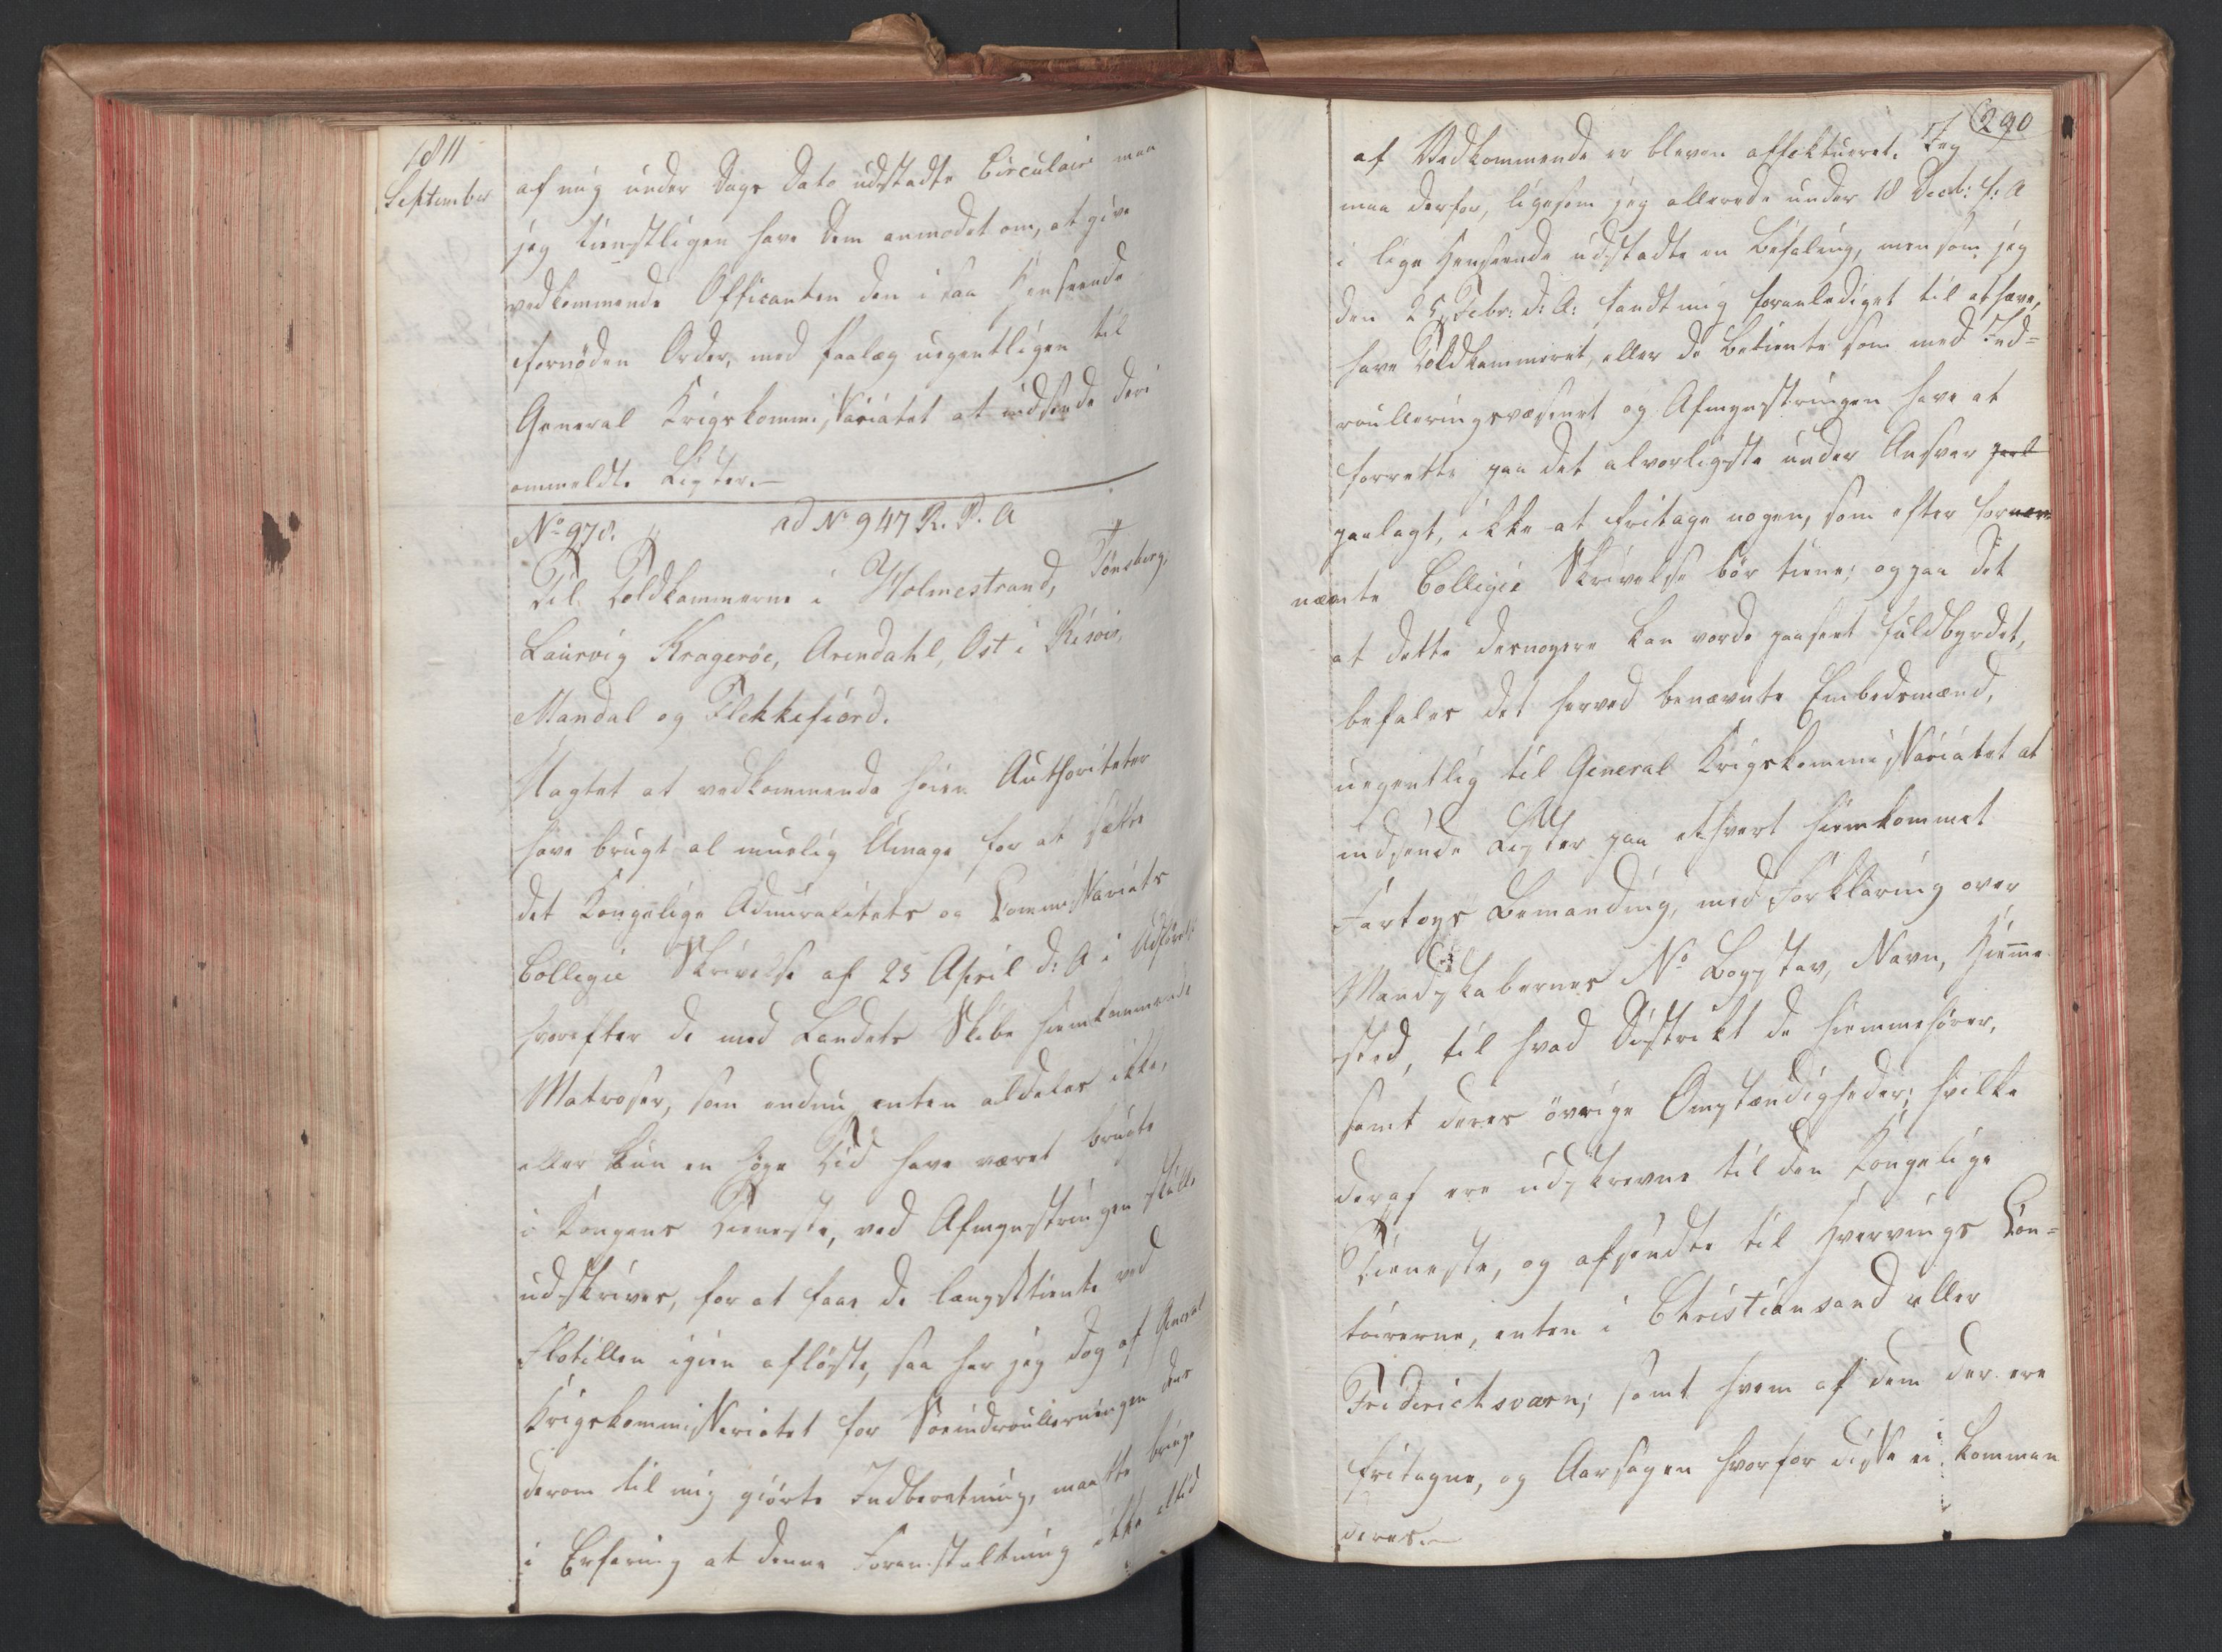 1811
September
af mig under Dags Dato udstædte Circulaire maa
jeg tienstligen have Dem anmodet om, at give
vedkommende Officianten den i saa Henseende
fornöden Order, med Paalæg uegentligen til
General Krigskommissariatet at indsende deri
ommeldte Lister.—
No 978. ad No 947 R. P. A
Til Toldkammerne i Holmestrand, Tönsberg,
Laurvig Krageröe, Arendahl, Ost i Risöir,
Mandal og Flekkefiord.
Uagtet at vedkommende höie Authoriteter
have brugt al muelig Umage for at sætte
det Kongelige Admiralitets og Commissariats
Collegie Skrivelse af 25 April d: A i Udförelse
hvorefter de med Landets Skibe hiemkommende
Matroser, som endnu enten aldeles ikke,
eller kun en Tid have været brugte
i Kongens Tieneste, ved Afmynstringen skulle
udskrives, for at faae de længsttiente ved
Flotillen igien aflöste, saa har jeg dog af General
Krigskommissariatet for Söeindroulleringen dens
derom til mig giörte Indberetning, maatte bringe
i Erfaring at denne Foranstaltning ikke altid
290
af Vedkommende er bleven effektueret. Jeg
maa derfor, ligesom jeg allerede under 18 Decb: f: A
i lige Henseende udstædte en Befaling, men som jeg
den 25 Febr: d: A: fandt mig foranlediget til at hæve,
have Toldkammeret eller de Betiente som med Ind=
roulleringsvæsenet og Afmynstringen have at
forrette paa det alvorligste under Ansvar
paalagt, ikke at fritage nogen, som efter forn
nævnte Collegie Skrivelse bör tiene; og paa det
at dette desnöiere kan vorde paaseet fuldbyrdet,
befales det herved benævnte Embedsmænd,
uegentlig til General Krigskommissariatet at
indsende Lister paa ethvert hiemkommet
Fartöys Bemanding, med Forklaring over
Mandskabernes No Bogstav, Navn, Hiemme
sted, til hvad Distrikt de hiemmehörer,
samt deres övrige Omstændigheder; hvilke
deraf ere udskrevne til den Kongelige
Tieneste, og afsendte til Hvervings Con=
toirerne, enten i Christiansand eller
Friderichsværn; samt hvem af dem der ere
fritagne, og Aarsagen hvorfor disse ei komman
deres.—